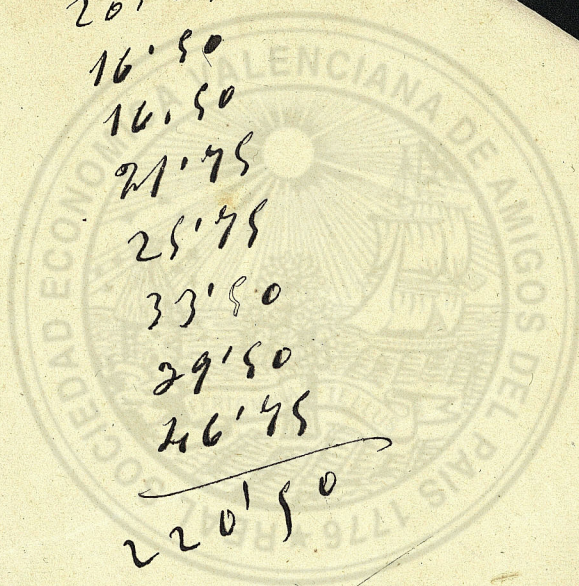 20'
16'50
16,50
21'75
25'75
33'50
39'50
46'75
220'50
REAL SOCIEDAD ECONOMICA VALENCIANA DE AMIGOS DEL PAIS 1776